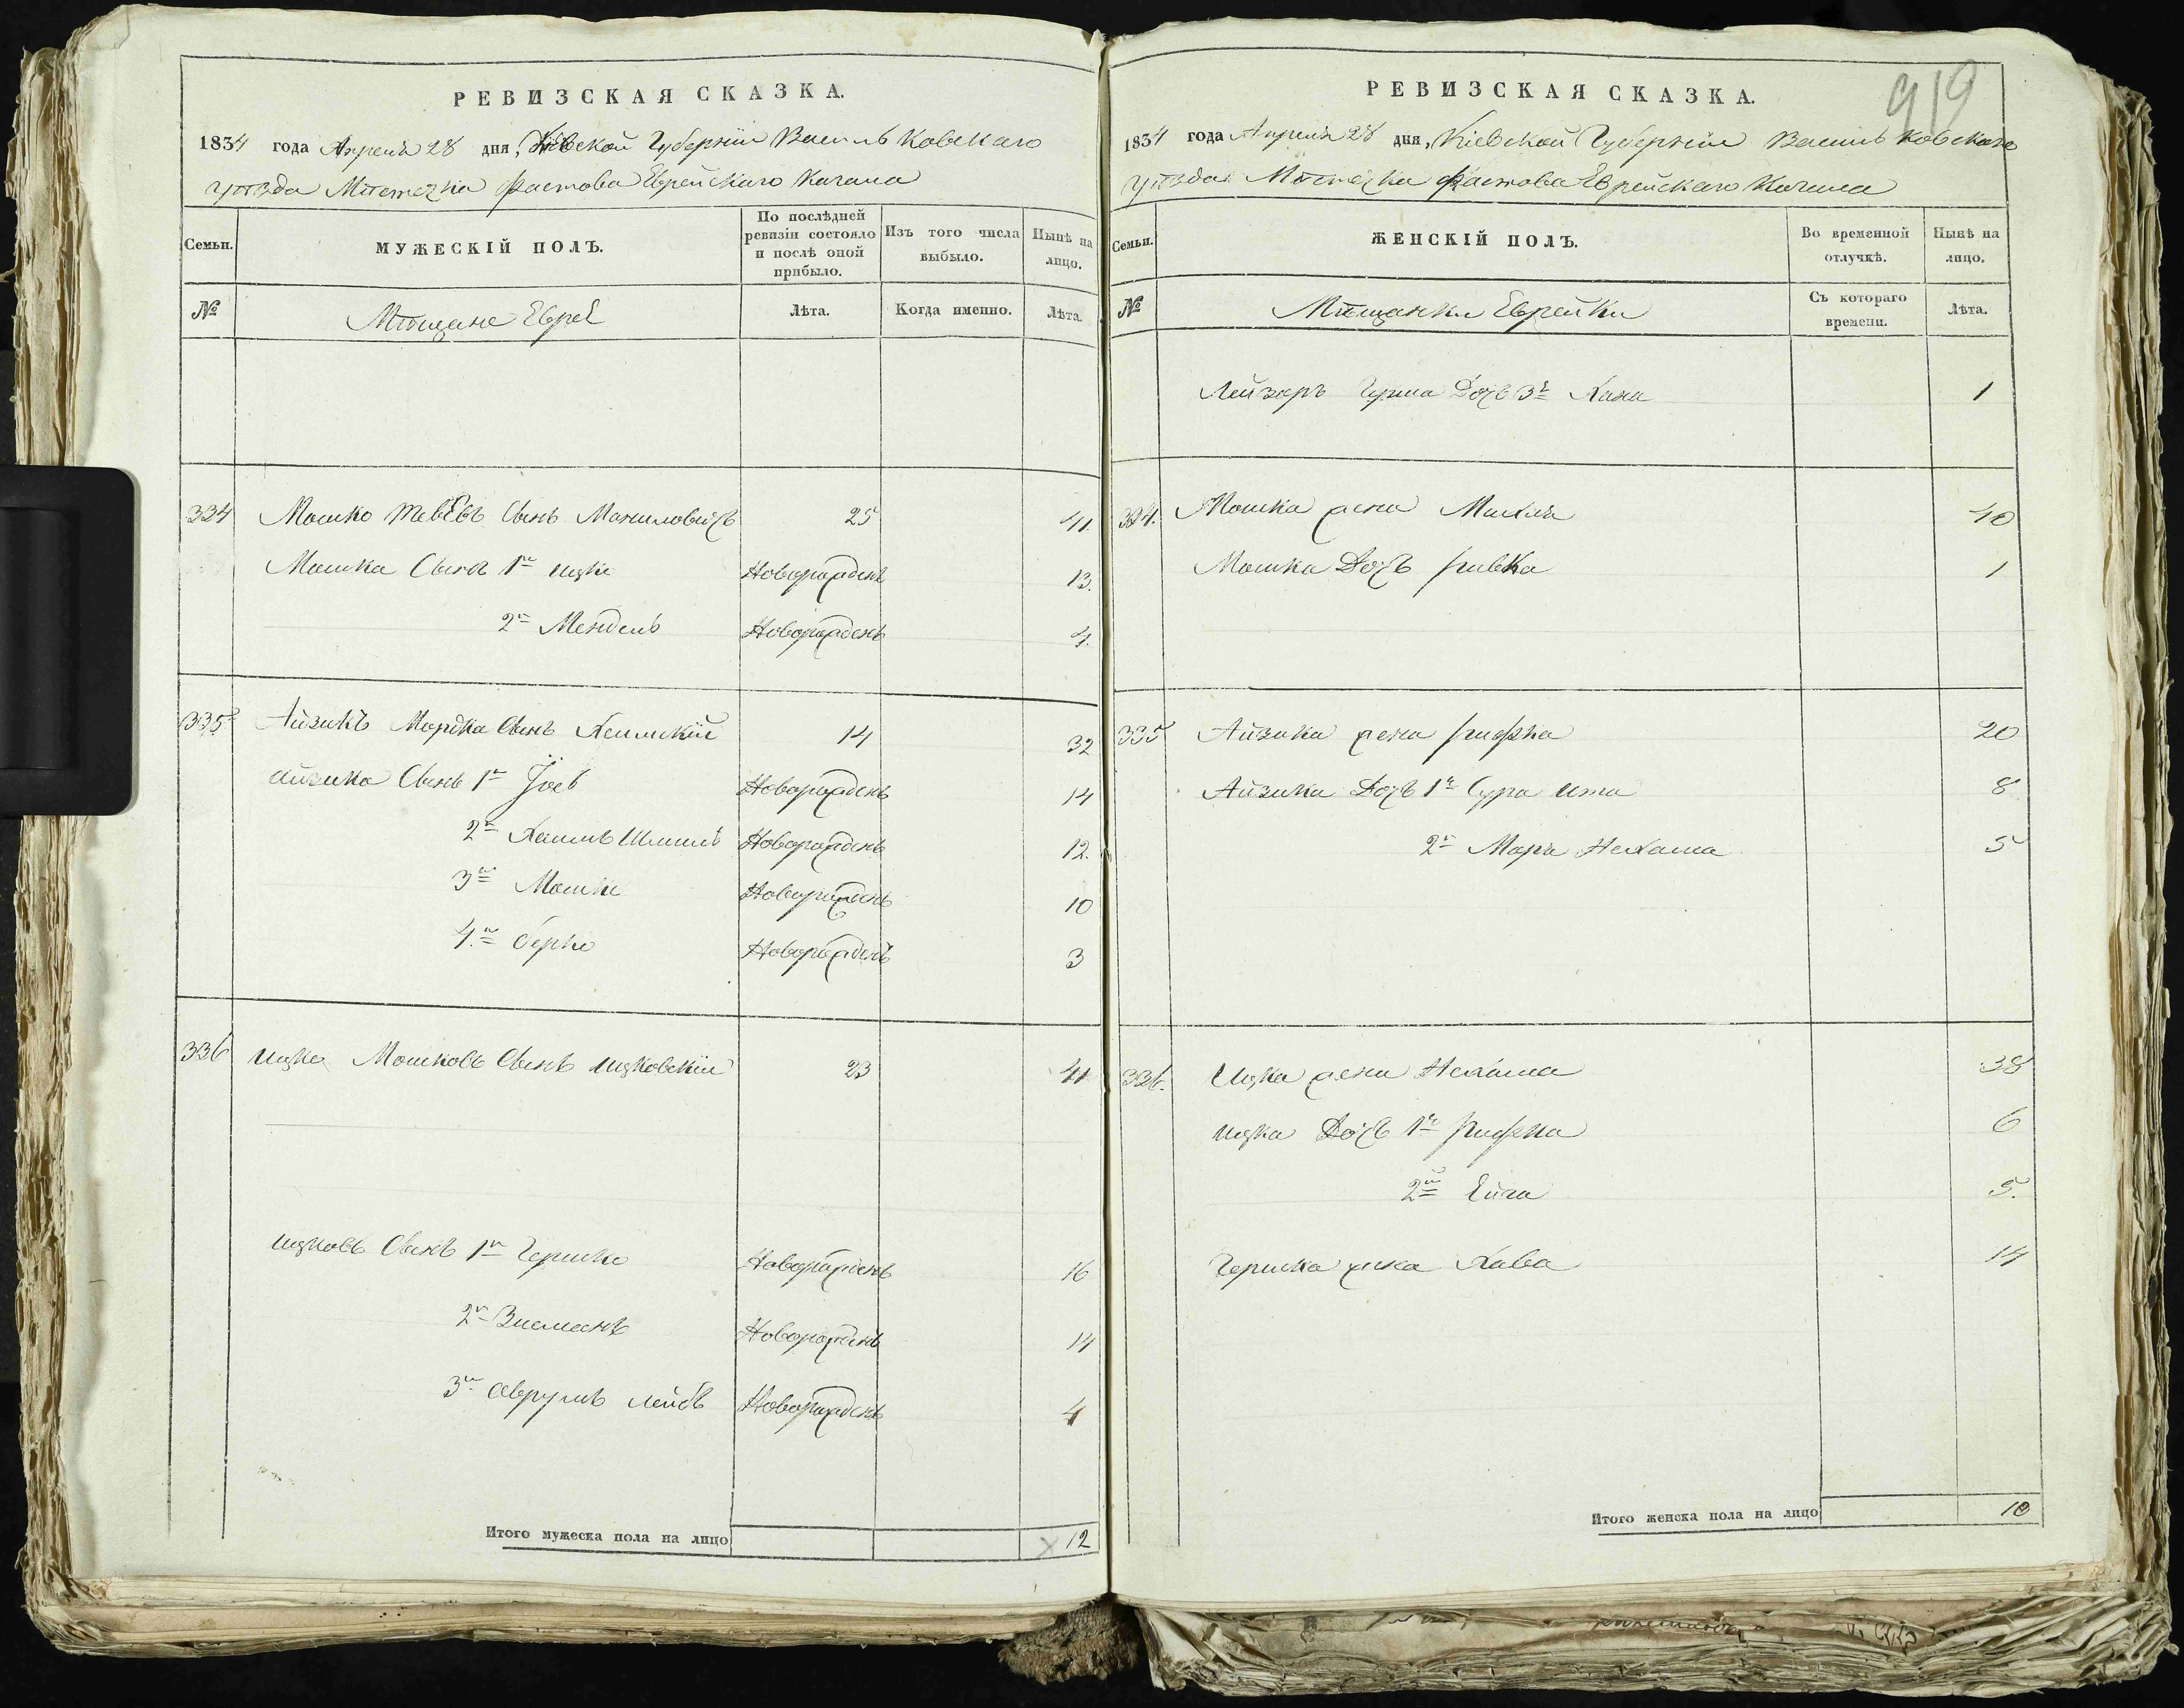 РЕВИЗСКАЯ СКАЗКА.
1834 года Апреля 28 дня, Кіевской Губерніи Васильковскаго
уѣзда Мѣстечка Фастова Еврейскаго Кагала
Семьи. МУЖЕСКІЙ ПОЛЪ. По послѣдней ревизіи состояло и послѣ оной прибыло. Изъ того числа выбыло. Нынѣ на лицо.
№ Мѣщане Евреі Лѣта. Когда именно. Лѣта.
334 Мошко Тевевъ Сынъ 25 41.
Мошка Сынъ 1й Ицко Новорожденъ 13.
2й Мендель Новорожденъ 4.
335 Айзикъ Мордка Сынъ 14 32
Айзика Сынъ 1й Новорожденъ 14
2й Хаимъ Шмиль Новорожденъ 12.
3й Мошко Новорожденъ 10
4й Берко Новорожденъ 3
336 Ицко Мошковъ Сынъ Ицковскій 23 41
Ицковъ Сынъ 1й Гершко Новорожденъ 16
2й Зисманъ Новорожденъ 14
3й Аврумъ Лейбъ Новорожденъ 4
Итого мужеска пола на лицо 12
919
РЕВИЗСКАЯ СКАЗКА.
1834 года Апреля 28 дня, Кіевской Губерніи Васильковскаго
уѣзда Мѣстечка Фастова Еврейскаго Кагала
Семьи. ЖЕНСКІЙ ПОЛЪ. Во временной отлучкѣ. Нынѣ на лицо.
№ Мѣщанки Еврейки Съ котораго времени. Лѣта.
Лейзоръ Дочь 3я Хана 1
334. Мошка жена Михля 40
Мошка Дочь Ривка 1
335 Айзика жена Рифка 20
Айзика Дочь 1я Сура Ита 8
2я Маря Нехама 5
336. Ицка жена Нехама 38
Ицка Дочь 1я Рифка 6
2я Ейга 5.
Гершка жена Хава 14
Итого женска пола на лицо 10